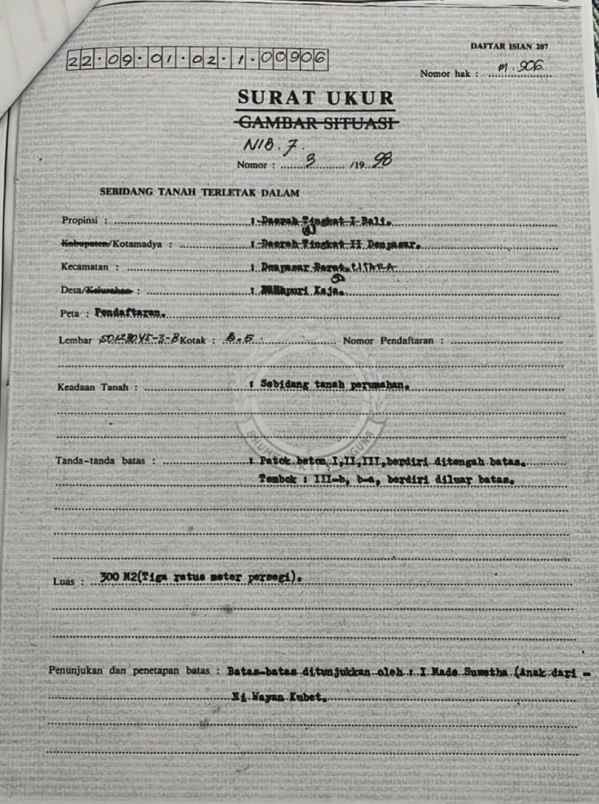 DAFTAR ISIAN 207
22.09.01.02.1.00906
Nomor hak : M. 906
SURAT UKUR
GAMBAR SITUASI
NIB. 7.
Nomor : 3 /1998
SEBIDANG TANAH TERLETAK DALAM
Propinsi : : Daerah Tingkat I Bali.
Kabupaten/Kotamadya : : Daerah Tingkat II Denpasar.
Kecamatan : : Denpasar Barat. UTARA
Desa/Kelurahan : : puri Kaja.
Peta : Pendaftaran.
Lembar : Kotak : B.5 Nomor Pendaftaran :
Keadaan Tanah : : Sebidang tanah perumahan.
Tanda-tanda batas : : Patok beton I,II,III,berdiri ditengah batas.
Tembok : III-b, b-a, berdiri diluar batas.
Luas : 300 M2(Tiga ratus meter persegi).
Penunjukan dan penetapan batas : Batas-batas ditunjukkan oleh : I Made Suwetha (Anak dari -
Ni Wayan Kubet.